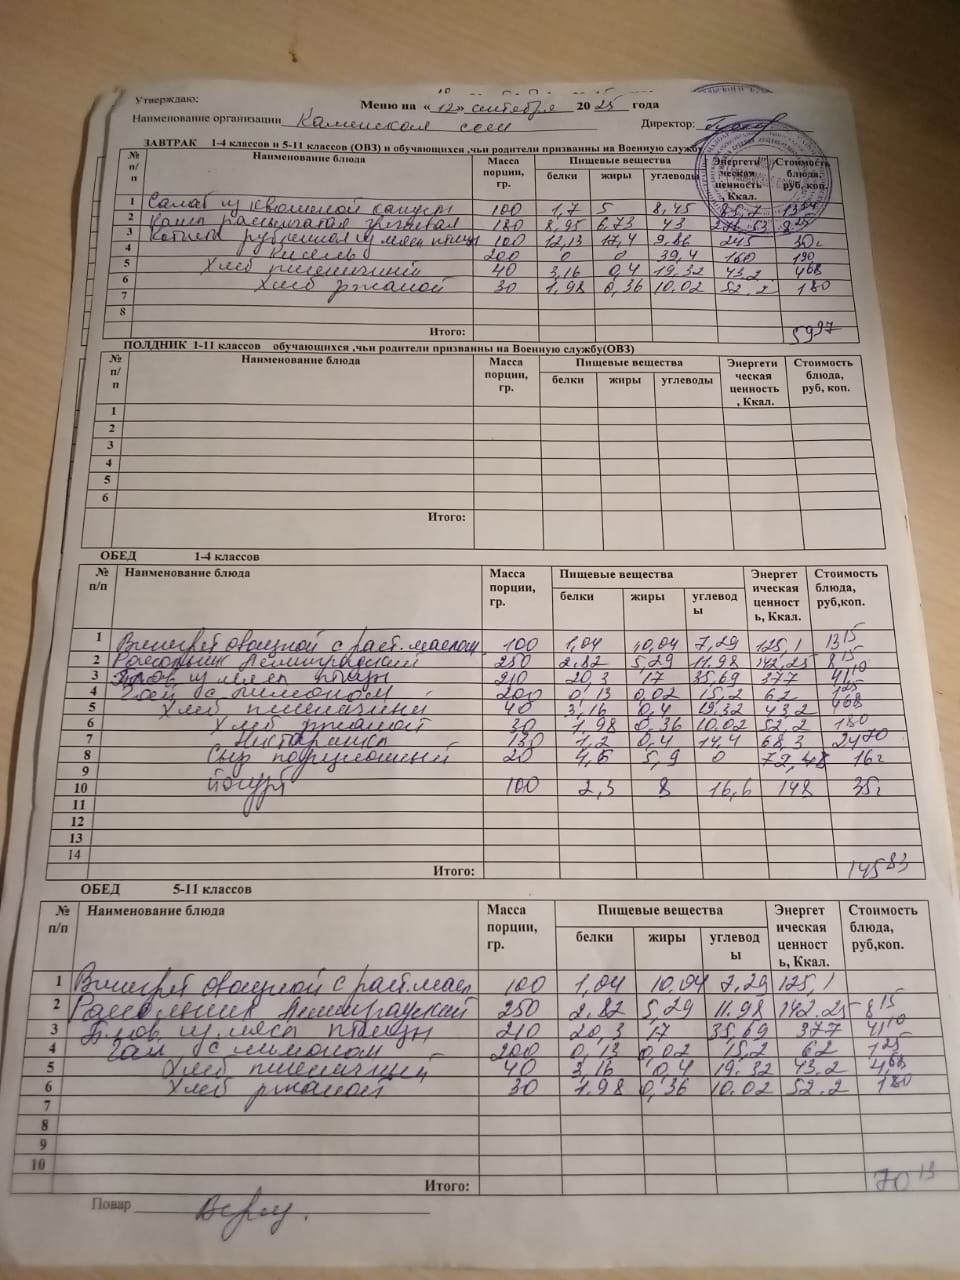 Утверждаю:
Меню на «12» сентября 2025 года
Наименование организации Каменская сош Директор:
ЗАВТРАК 1-4 классов и 5-11 классов (ОВЗ) и обучающихся ,чьи родители призванны на Военную службу
№ п/п Наименование блюда Масса порции, гр. Пищевые вещества Энергетическая ценность Ккал. Стоимость блюда, руб, коп.
белки жиры углеводы
1 Салат из квашеной капусты 100 1,7 5 8,45
2 Каша рассыпчатая гречневая 180 8,95 6,73 43
3 Котлета рубленная из мяса птицы 100 12,13 17,4 9.86 245 30
4 Кисель 200 0 0 39,4 160 190
5 Хлеб пшеничный 40 3,16 0,4 19.32 43.2 468
6 Хлеб ржаной 30 1,98 0,36 10.02 52.2 180
7
8
Итого: 5997
ПОЛДНИК 1-11 классов обучающихся ,чьи родители призванны на Военную службу(ОВЗ)
№ п/п Наименование блюда Масса порции, гр. Пищевые вещества Энергетическая ценность, Ккал. Стоимость блюда, руб, коп.
белки жиры углеводы
1
2
3
4
5
6
Итого:
ОБЕД 1-4 классов
№ п/п Наименование блюда Масса порции, гр. Пищевые вещества Энергетическая ценность, Ккал. Стоимость блюда, руб,коп.
белки жиры углеводы
1 Винегрет овощной с раст.маслом 100 1,04 10,04 7,29 125,1 1315
2 Рассольник Ленинградский 250 2.82 5,29 11.98 142,25 815
3 Плов из мяса птицы 210 20,3 17 35,69 377 4110
4 Чай с лимоном 200 0,13 0,02 15,2 62 125
5 Хлеб пшеничный 40 3,16 0,4 19.32 43.2 468
6 Хлеб ржаной 30 1,98 0,36 10.02 52,2 180
7 130 1,2 0,4 14,4 68,3 2470
8 Сыр порционный 20 4,6 5,9 0 72,48 16
9
10 йогурт 100 2,3 8 16,6 148 35
11
12
13
14
Итого: 14583
ОБЕД 5-11 классов
№ п/п Наименование блюда Масса порции, гр. Пищевые вещества Энергетическая ценность, Ккал. Стоимость блюда, руб,коп.
белки жиры углеводы
1 Винегрет овощной с раст.масл 100 1,04 10,04 7,29 125,1
2 Рассольник Ленинградский 250 2,82 5,29 11.98 142.25 815
3 Плов из мяса птицы 210 20,3 17 35,69 377 4110
4 Чай с лимоном 200 0,13 0,02 15,2 62 125
5 Хлеб пшеничный 40 3,16 0,4 19.32 43.2 4,68
6 Хлеб ржаной 30 1.98 0,36 10.02 52.2 180
7
8
9
10
Итого: 7013
Повар